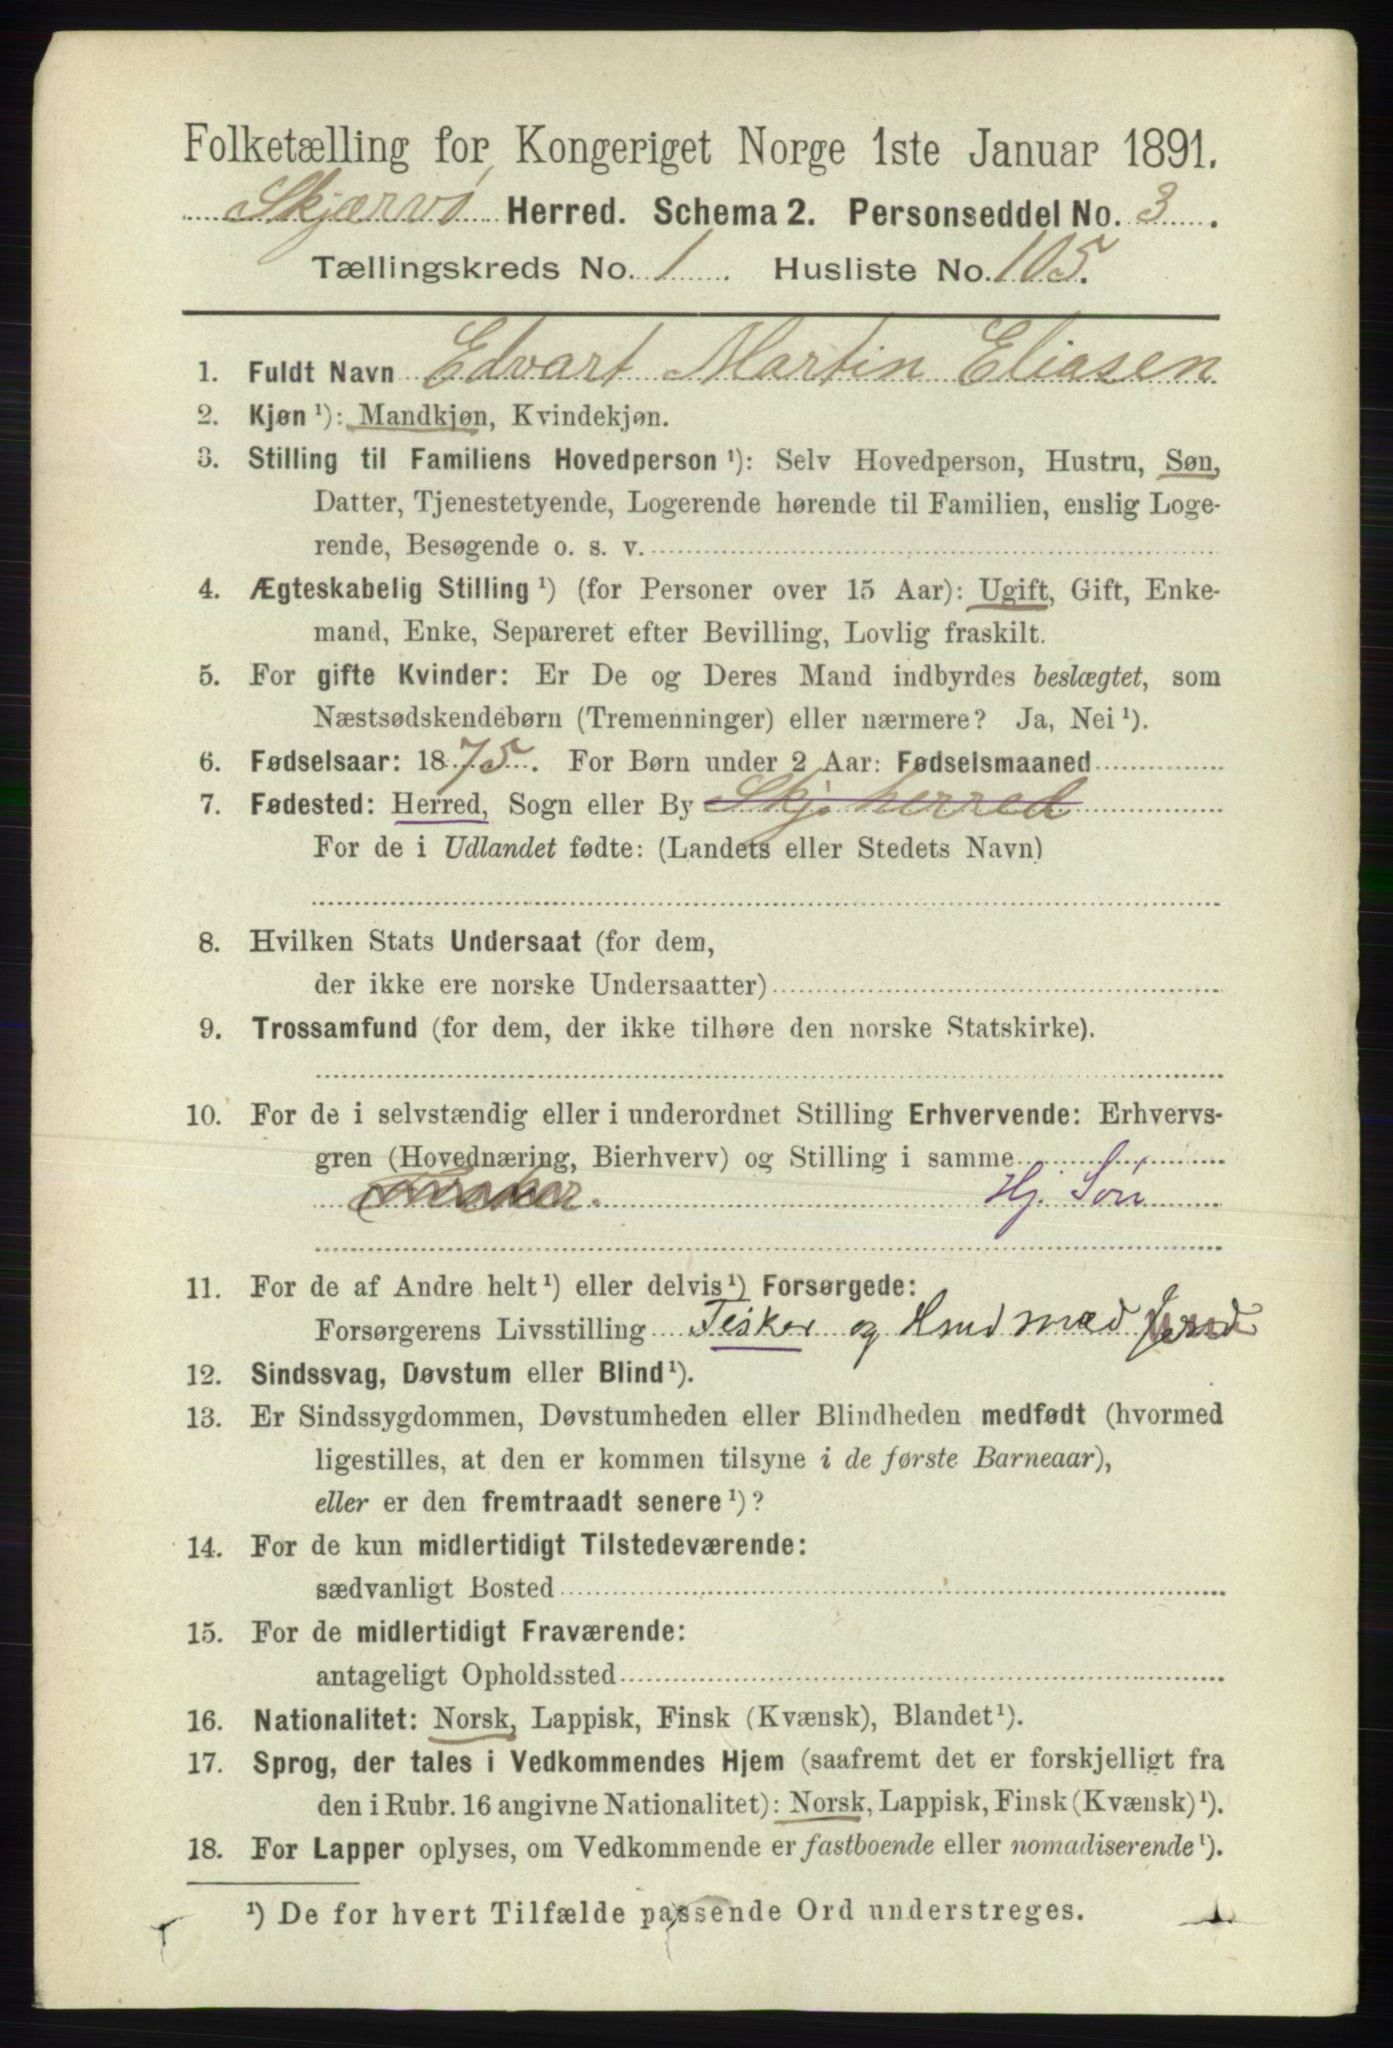 Folketælling for Kongeriget Norge 1ste Januar 1891.
Skjærvø Herred. Schema 2. Personseddel No. 3.
Tællingskreds No. 1. Husliste No. 105.
1. Fuldt Navn Edvart Martin Eliasen
2. Kjøn ¹): Mandkjøn, Kvindekjøn.
3. Stilling til Familiens Hovedperson ¹): Selv Hovedperson, Hustru, Søn,
Datter, Tjenestetyende, Logerende hørende til Familien, enslig Loge-
rende, Besøgende o. s. v.
4. Ægteskabelig Stilling ¹) (for Personer over 15 Aar): Ugift, Gift, Enke-
mand, Enke, Separeret efter Bevilling, Lovlig fraskilt.
5. For gifte Kvinder: Er De og Deres Mand indbyrdes beslægtet, som
Næstsødskendebørn (Tremenninger) eller nærmere? Ja, Nei ¹).
6. Fødselsaar: 1875. For Børn under 2 Aar: Fødselsmaaned
7. Fødested: Herred, Sogn eller By Skj. herred
For de i Udlandet fødte: (Landets eller Stedets Navn)
8. Hvilken Stats Undersaat (for dem,
der ikke ere norske Undersaatter)
9. Trossamfund (for dem, der ikke tilhøre den norske Statskirke).
10. For de i selvstændig eller i underordnet Stilling Erhvervende: Erhvervs-
gren (Hovednæring, Bierhverv) og Stilling i samme
Hj. Søn
11. For de af Andre helt ¹) eller delvis ¹) Forsørgede:
Forsørgerens Livsstilling Fisker og Husmand med Jord
12. Sindssvag, Døvstum eller Blind ¹).
13. Er Sindssygdommen, Døvstumheden eller Blindheden medfødt (hvormed
ligestilles, at den er kommen tilsyne i de første Barneaar),
eller er den fremtraadt senere ¹)?
14. For de kun midlertidigt Tilstedeværende:
sædvanligt Bosted
15. For de midlertidigt Fraværende:
antageligt Opholdssted
16. Nationalitet: Norsk, Lappisk, Finsk (Kvænsk), Blandet ¹).
17. Sprog, der tales i Vedkommendes Hjem (saafremt det er forskjelligt fra
den i Rubr. 16 angivne Nationalitet): Norsk, Lappisk, Finsk (Kvænsk) ¹).
18. For Lapper oplyses, om Vedkommende er fastboende eller nomadiserende ¹).
¹) De for hvert Tilfælde passende Ord understreges.